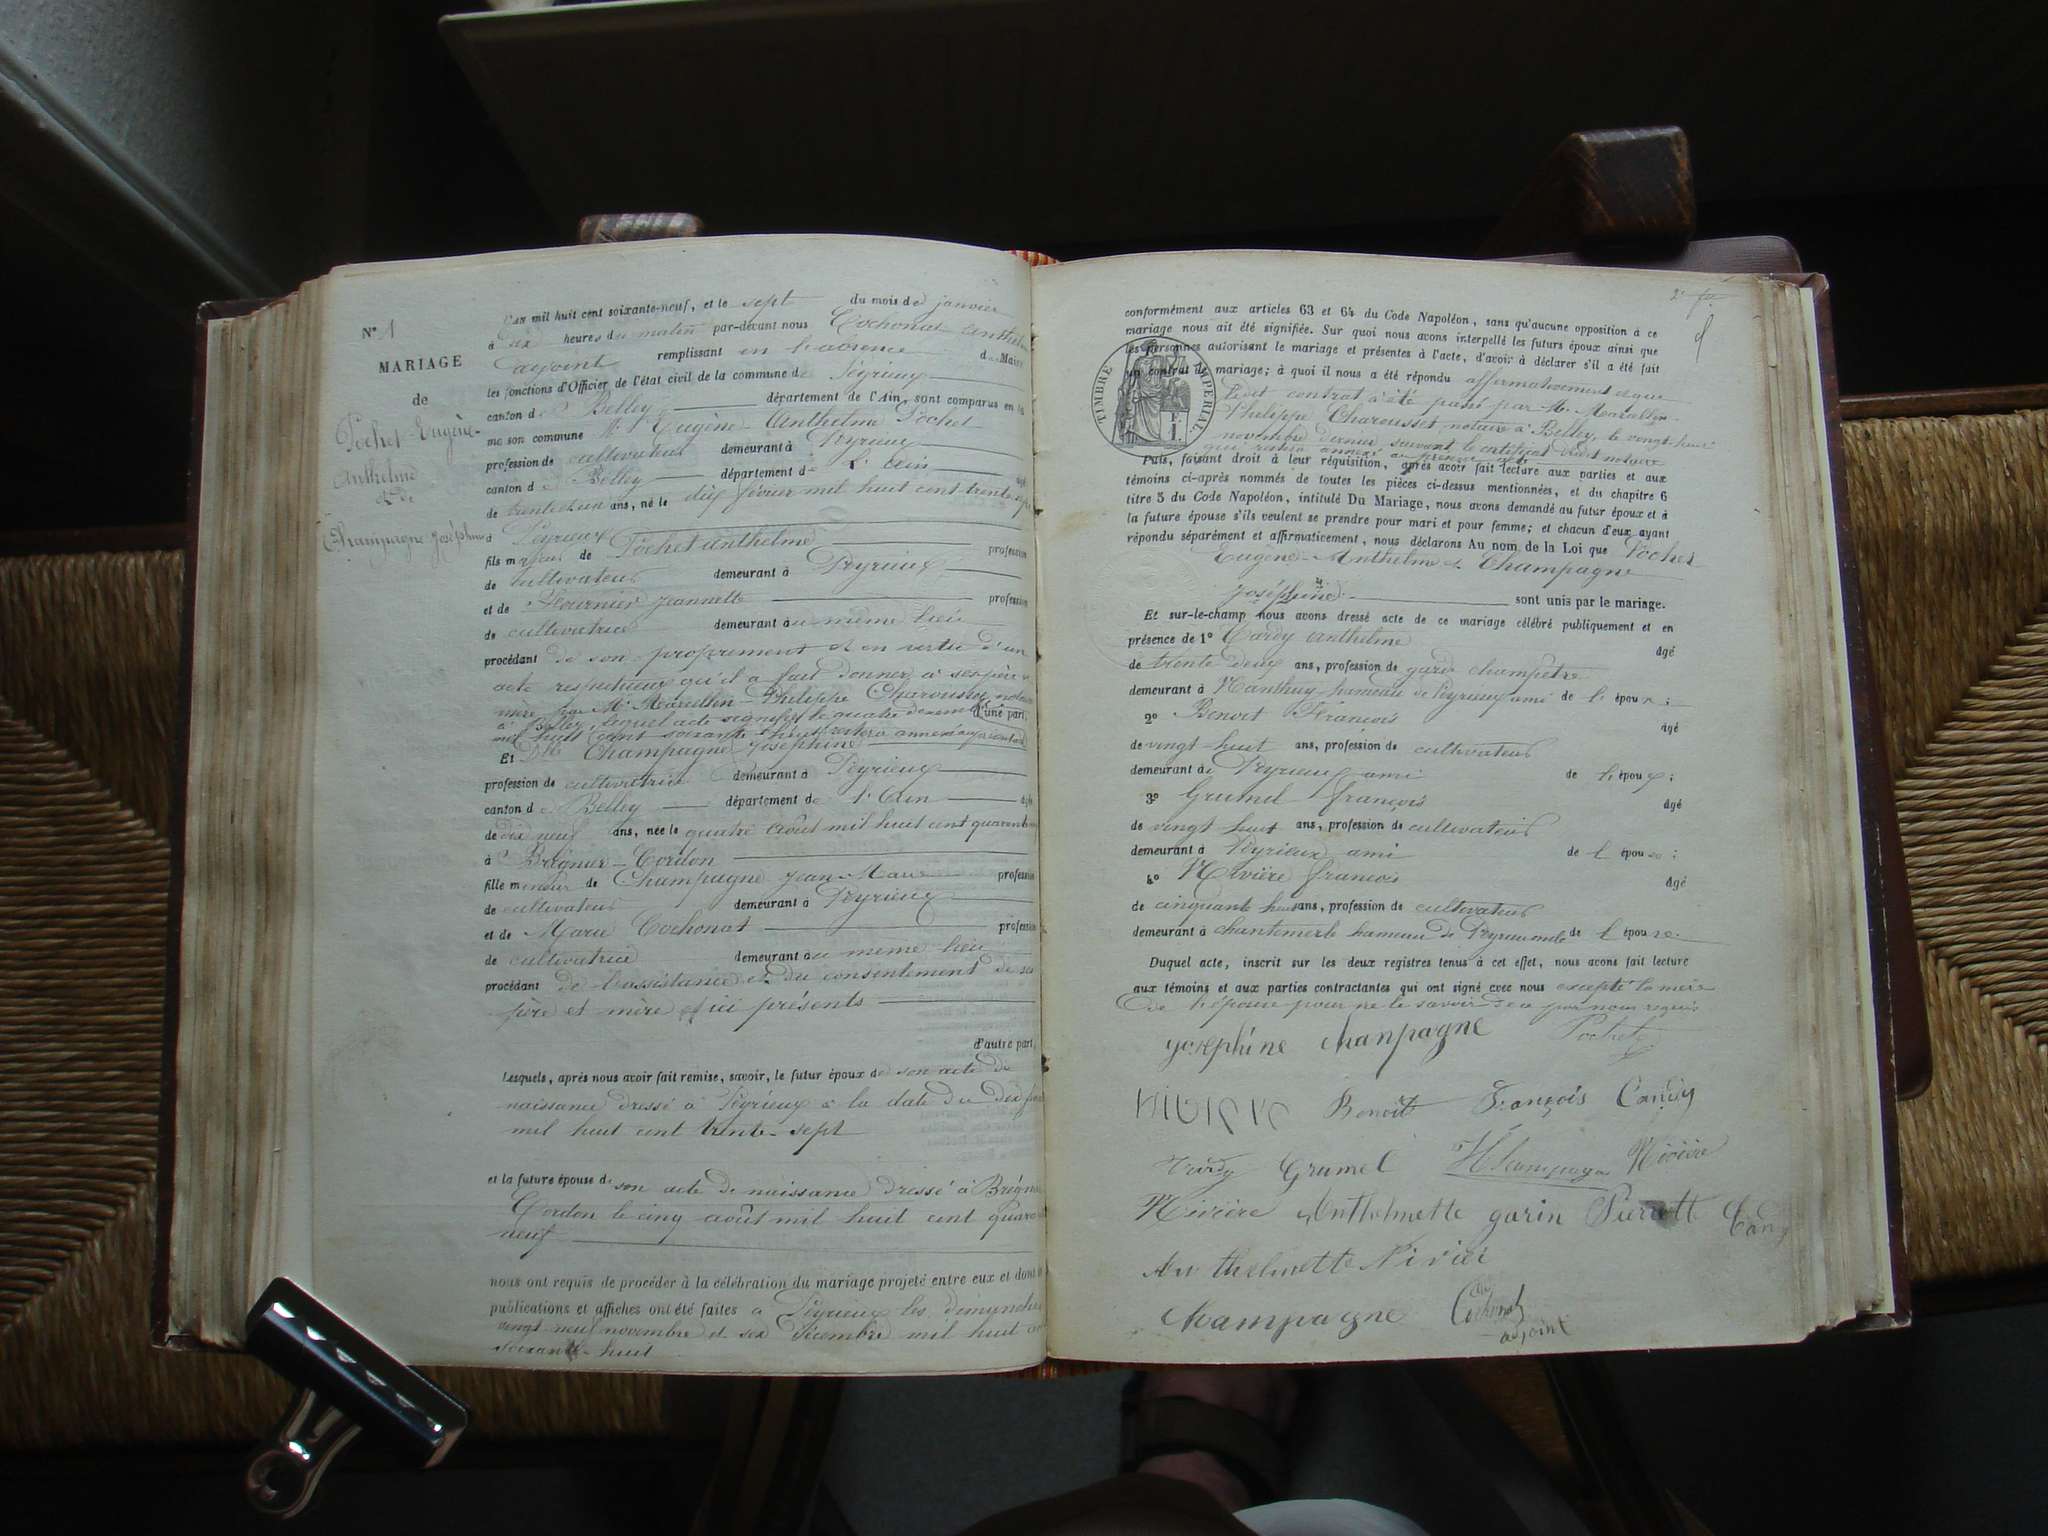 N° 1
MARIAGE
de
Pochet Eugène
Anthelme
et de
Champagne Joséphine
L'AN mil huit cent soixante-neuf, et le sept du mois de janvier
à dix heures du matin par-devant nous Cochonat Anthelme
adjoint remplissant en l'absence du Maire
les fonctions d'Officier de l'état civil de la commune de Peyrieux
canton de Belley département de l'Ain, sont comparus en la
maison commune Mr Eugène Anthelme Pochet
profession de cultivateur demeurant à Peyrieux
canton de Belley département de l'Ain âgé
de trente un ans, né le dix février mil huit cent trente sept
à Peyrieux
fils majeur de Pochet Anthelme profession
de cultivateur demeurant à Peyrieux
et de Fournier Jeannette profession
de cultivatrice demeurant au même lieu
procédant de son propre et en vertu d'un
acte respectueux qu'il a fait donner à ses père et
mère par Me Marcellin-Philippe Charousset notaire
à Belley, lequel acte signifié le quatre d'une part,
mil huit cent soixante huit restera annexé au présent
Et Dlle Champagne Joséphine
profession de cultivatrice demeurant à Peyrieux
canton de Belley département de l'Ain âgée
de dix neuf ans, née le quatre août mil huit cent quarante
à Brégnier-Cordon
fille mineur de Champagne Jean-Marie profession
de cultivateur demeurant à Peyrieux
et de Marie Cochonat profession
de cultivatrice demeurant au même lieu
procédant de l'assistance et du consentement de ses
père et mère ici présents
d'autre part,
Lesquels, après nous avoir fait remise, savoir, le futur époux de son acte de
naissance dressé à Peyrieux à la date du dix
mil huit cent trente-sept
et la future épouse de son acte de naissance dressé à Brégnier
Cordon le cinq août mil huit cent quarante
neuf
nous ont requis de procéder à la célébration du mariage projeté entre eux et dont les
publications et affiches ont été faites à Peyrieux les dimanches
vingt neuf novembre et six décembre mil huit cent
soixante-huit
conformément aux articles 63 et 64 du Code Napoléon, sans qu'aucune opposition à ce
mariage nous ait été signifiée. Sur quoi nous avons interpellé les futurs époux ainsi que
les personnes autorisant le mariage et présentes à l'acte, d'avoir à déclarer s'il a été fait
un contrat de mariage; à quoi il nous a été répondu affirmativement et que
ledit contrat a été passé par Me Marcellin
Philippe Charousset notaire à Belley, le vingt huit
novembre dernier suivant le certificat dudit notaire
qui restera annexé au présent acte
TIMBRE IMPERIAL
Puis, faisant droit à leur réquisition, après avoir fait lecture aux parties et aux
témoins ci-après nommés de toutes les pièces ci-dessus mentionnées, et du chapitre 6
titre 5 du Code Napoléon, intitulé Du Mariage, nous avons demandé au futur époux et à
la future épouse s'ils veulent se prendre pour mari et pour femme; et chacun d'eux ayant
répondu séparément et affirmaticement, nous déclarons Au nom de la Loi que Pochet
Eugène-Anthelme et Champagne
Joséphine sont unis par le mariage.
Et sur-le-champ nous avons dressé acte de ce mariage célébré publiquement et en
présence de 1° Cardy Anthelme âgé
de trente deux ans, profession de garde champêtre
demeurant à Nanthuy hameau de Peyrieux ami de l'époux;
2° Benoit François âgé
de vingt-huit ans, profession de cultivateur
demeurant à Peyrieux ami de l'époux;
3° Grumel françois âgé
de vingt huit ans, profession de cultivateur
demeurant à Peyrieux ami de l'épouse;
4° Rivière françois âgé
de cinquante huit ans, profession de cultivateur
demeurant à chantemerle hameau de Peyrieux oncle de l'épouse.
Duquel acte, inscrit sur les deux registres tenus à cet effet, nous avons fait lecture
aux témoins et aux parties contractantes qui ont signé avec nous excepté la mère
de l'épouse pour ne le savoir de ce par nous requis
josephine chanpagne Pochet
Benoit François Candy
Grumel Rivière
Rivière Anthelmette garin Pierrette
An thelmette
champagne Cochonat
adjoint